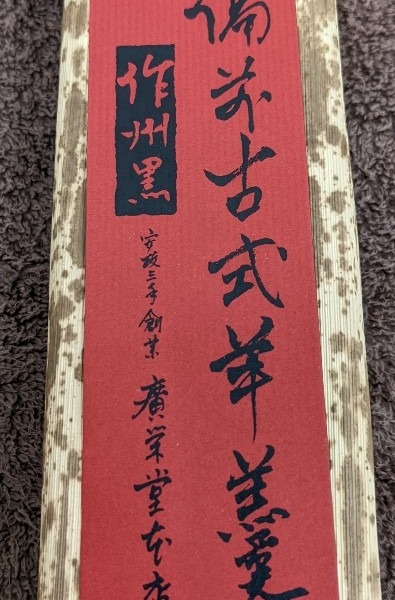 備前古式羊羹
作州黒
安政三年創業 廣榮堂本店